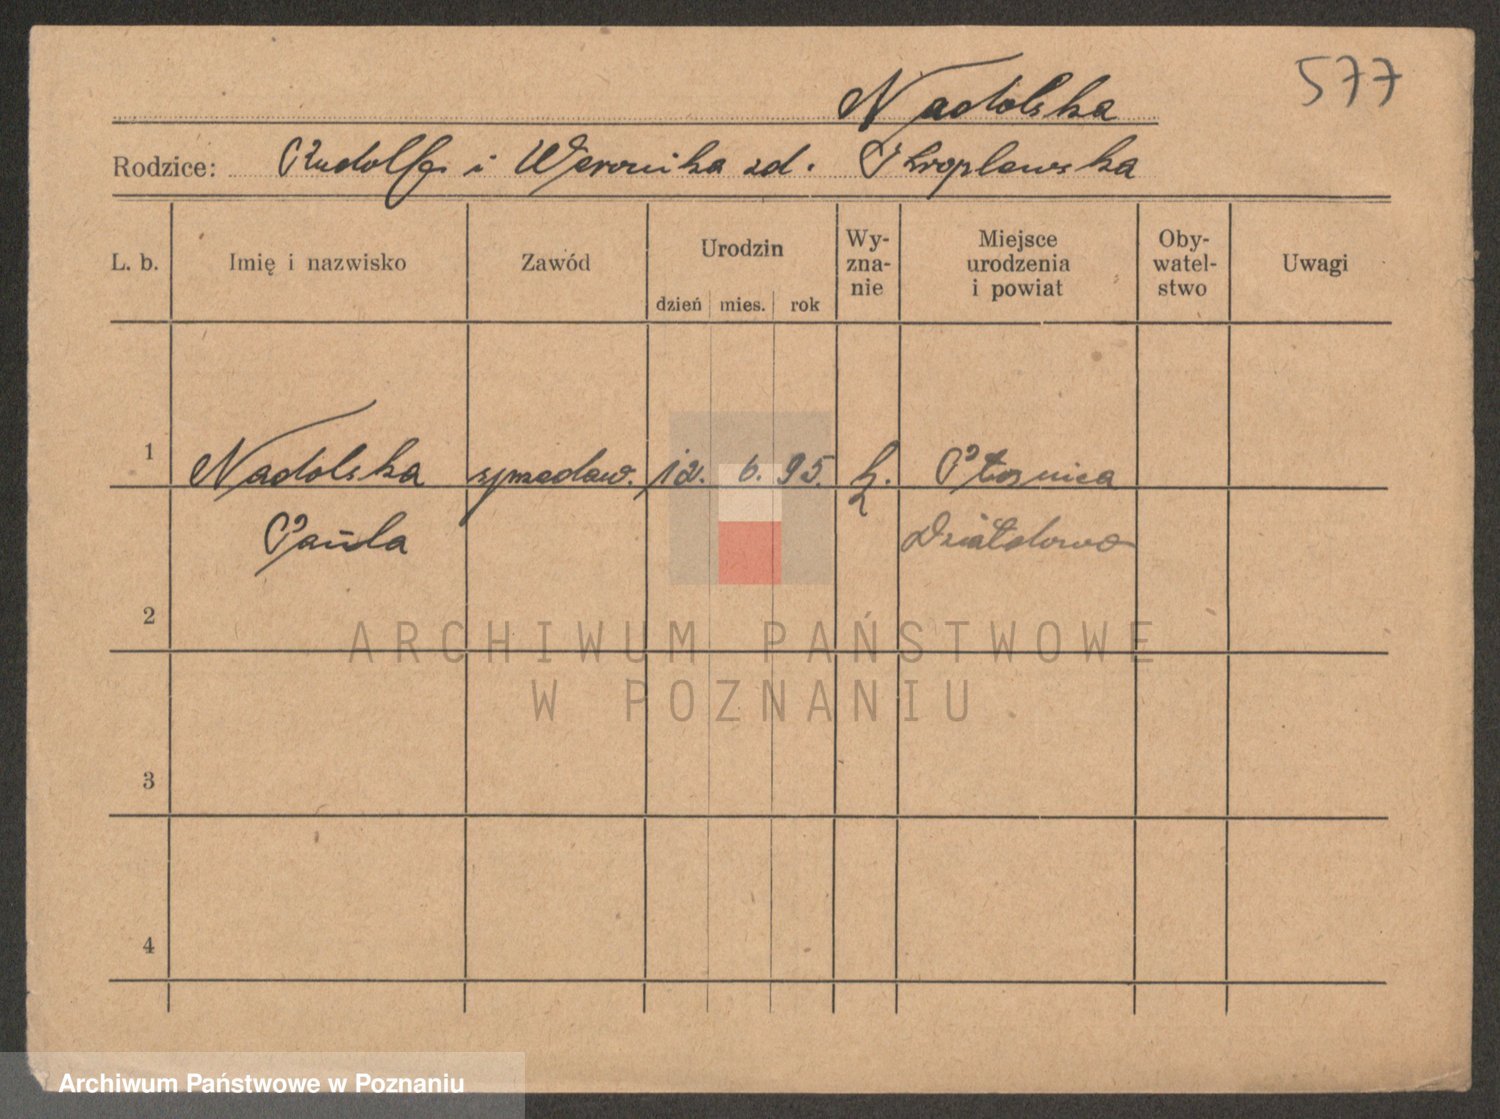 577
Nadolska
Rodzice: Rudolf i Weronika zd.
L. b. Imię i nazwisko Zawód Urodzin dzień mies. rok Wy-zna-nie Miejsce urodzenia i powiat Oby-watel-stwo Uwagi
1 Nadolska sprzedaw. 12. 6. 95. Płośnica
Paula Działdowo
2
ARCHIWUM PAŃSTWOWE
W POZNANIU
3
4
Archiwum Państwowe w Poznaniu